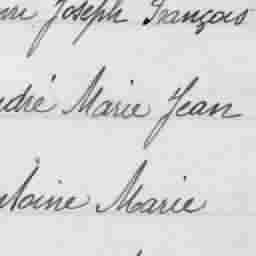 Joseph François
André Marie Jean
Antoine Marie